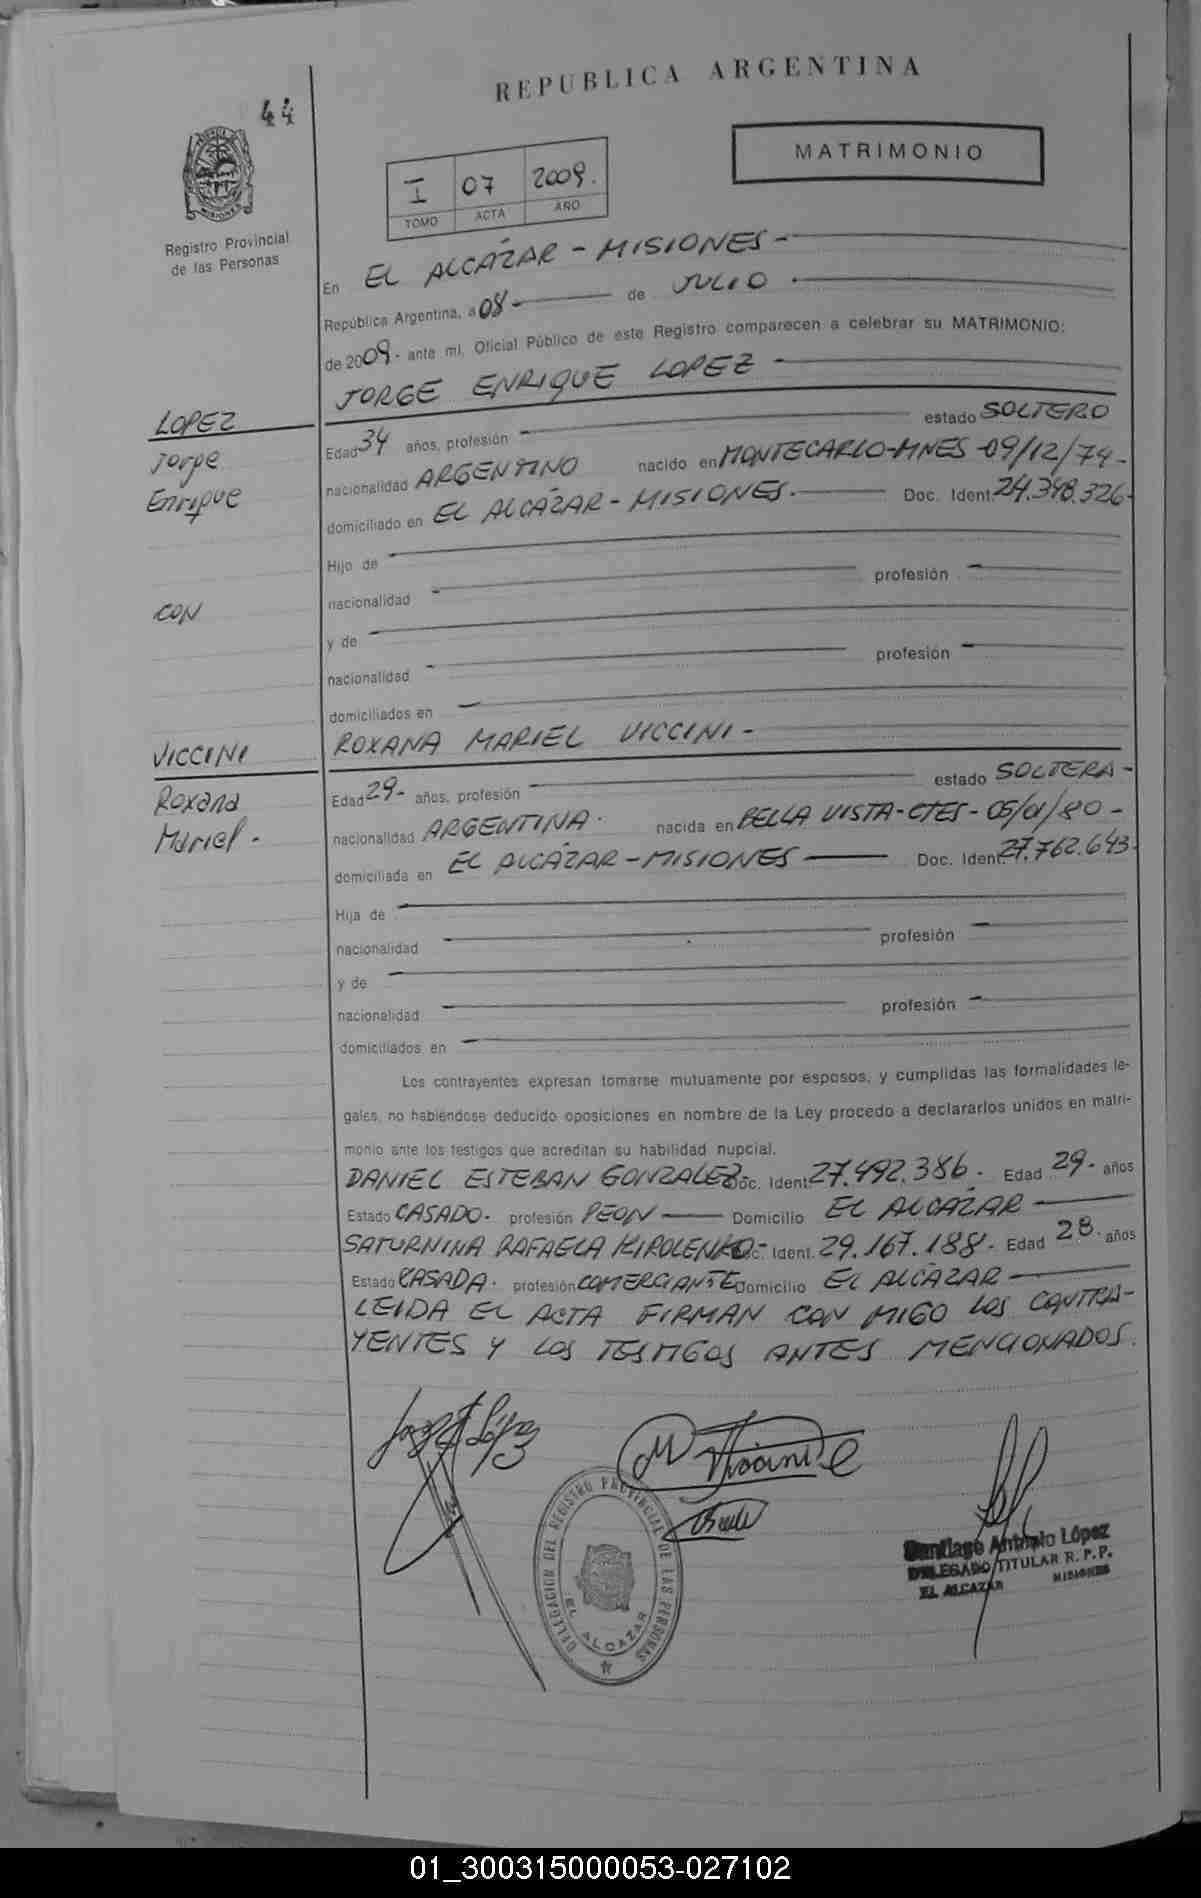 REPUBLICA ARGENTINA
44
MATRIMONIO
I 07 2009.
TOMO ACTA AÑO
MISIONES
Registro Provincial
de las Personas
En EL ALCÁZAR - MISIONES -
República Argentina, a 08 - de JULIO
de 2009 - ante mi, Oficial Público de este Registro comparecen a celebrar su MATRIMONIO:
JORGE ENRIQUE LOPEZ -
LOPEZ
Jorge
Enrique
Edad 34 años, profesión estado SOLTERO
nacionalidad ARGENTINO nacido en MONTECARLO-MNES -09/12/74-
domiciliado en EL ALCÁZAR - MISIONES. Doc. Ident. 24.348.326-
Hijo de
nacionalidad profesión
CON
y de
nacionalidad profesión
domiciliados en
ROXANA MARIEL VICCINI -
VICCINI
Roxana
Mariel -
Edad 29- años, profesión estado SOLTERA -
nacionalidad ARGENTINA. nacida en BELLA VISTA-CTES - 05/01/80 -
domiciliada en EL ALCÁZAR - MISIONES Doc. Ident. 27.762.643-
Hija de
nacionalidad profesión
y de
nacionalidad profesión
domiciliados en
Los contrayentes expresan tomarse mutuamente por esposos, y cumplidas las formalidades le-
gales, no habiéndose deducido oposiciones en nombre de la Ley procedo a declararlos unidos en matri-
monio ante los testigos que acreditan su habilidad nupcial.
DANIEL ESTEBAN GONZALEZ Doc. Ident. 27.492.386- Edad 29- años
Estado CASADO. profesión PEON Domicilio EL ALCÁZAR
SATURNINA RAFAELA KIROLENKO- Doc. Ident. 29.167.188- Edad 28- años
Estado CASADA. profesión COMERCIANTE Domicilio EL ALCÁZAR
LEIDA EL ACTA FIRMAN CON MIGO LOS CONTRA-
YENTES Y LOS TESTIGOS ANTES MENCIONADOS.
DELEGACION DEL REGISTRO PROVINCIAL DE LAS PERSONAS
EL ALCAZAR
Santiago Antonio López
DELEGADO TITULAR R. P. P.
EL ALCAZAR MISIONES
01_300315000053-027102